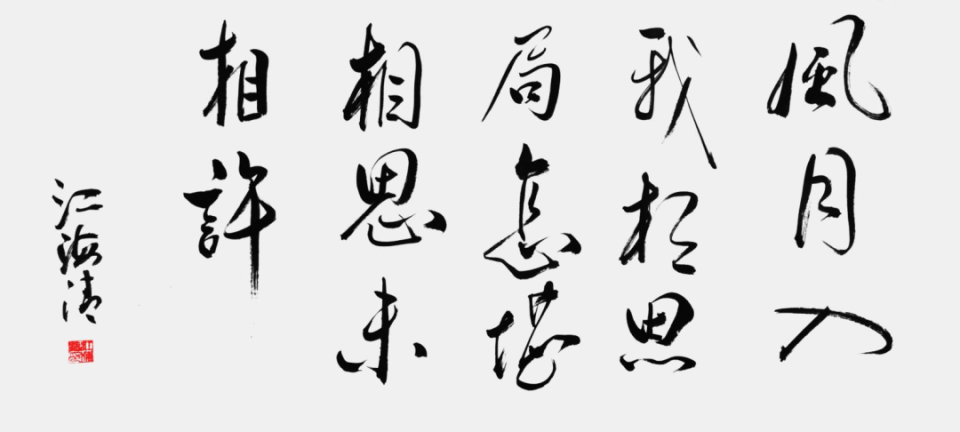 風月入
我相思
局怎堪
相思未
相許
江海清